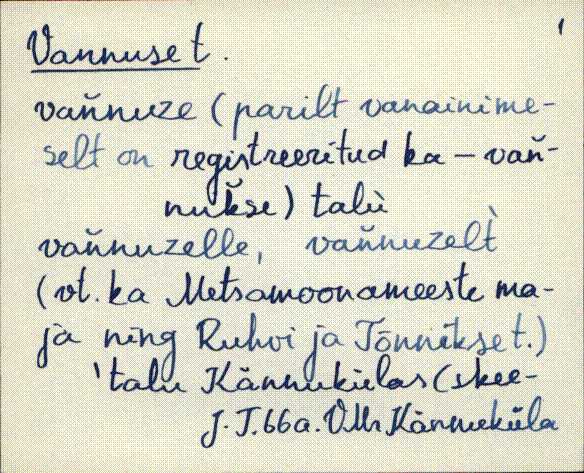 Vannuse t.
vaňnuze (parilt vanainime-
selt on registreeritud ka – vaň-
nukse) talù
vaňnuzelle, vaňnuzelt̀
(vt. ka Metsamoonameeste ma-
jà ning Ruhvi ja Tõnnikse t.)
'talu Kännukülas (skee-
J. T. 66a. VMr Kännuküla